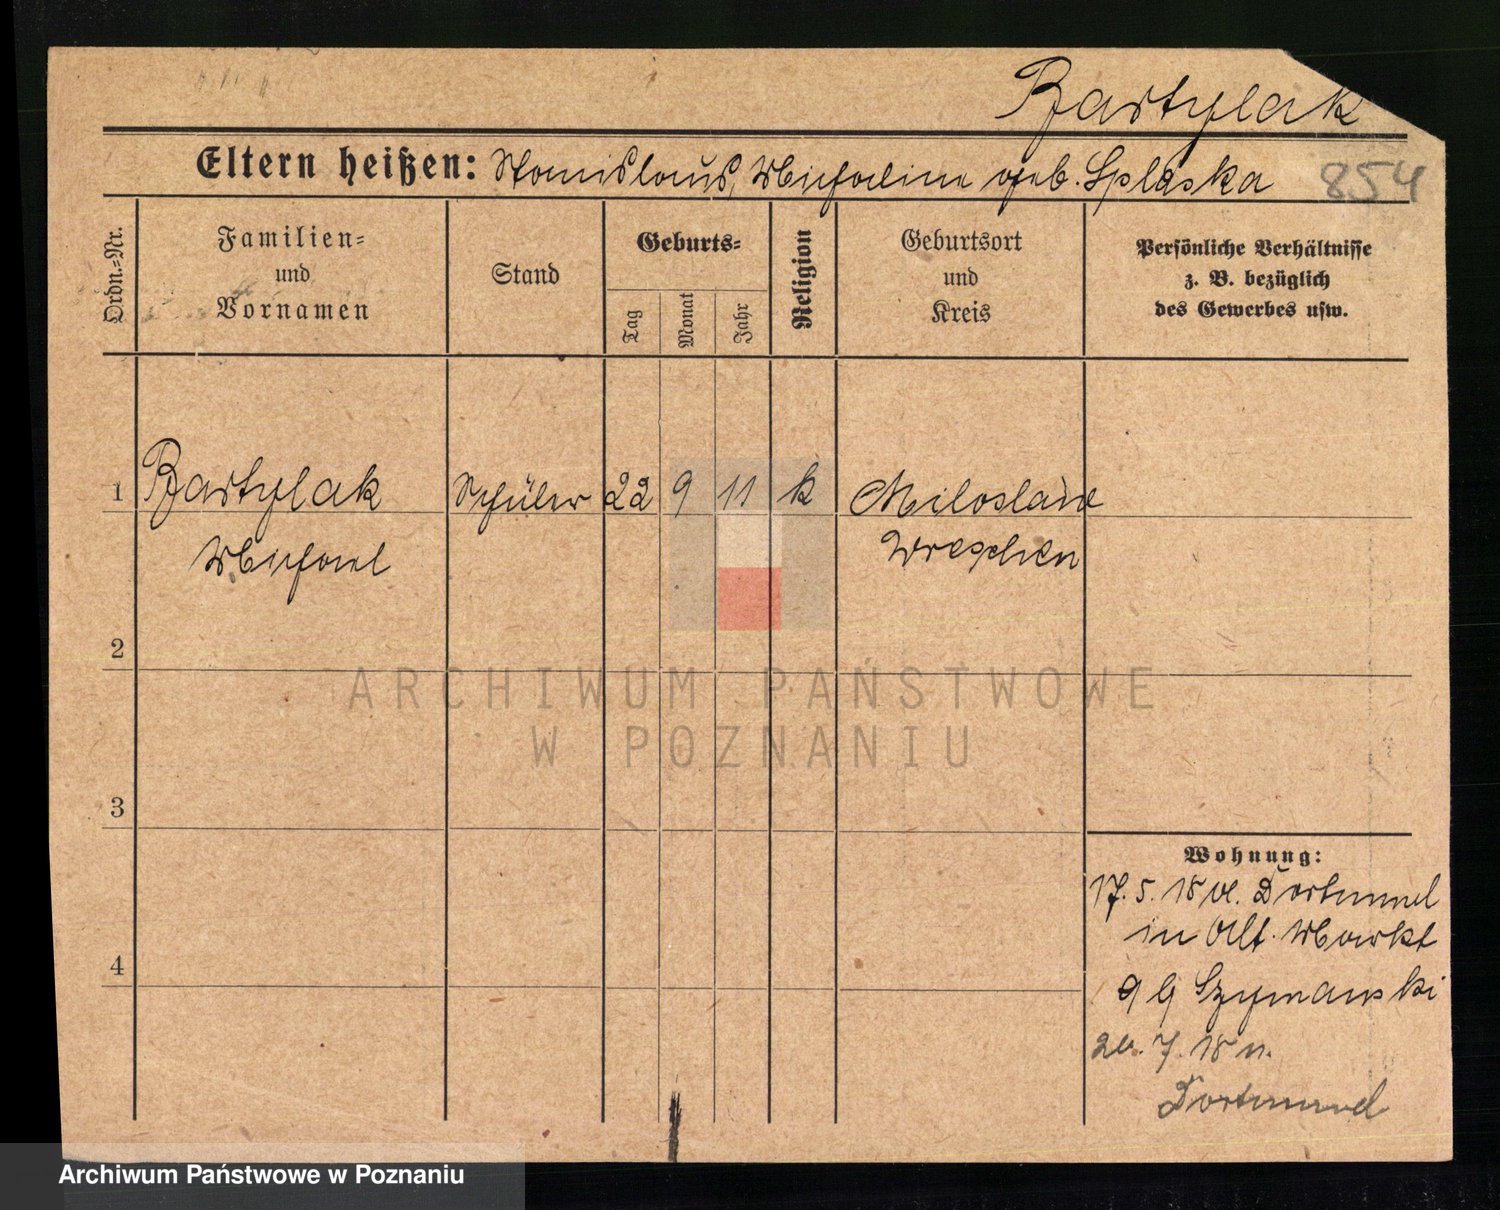 Bartylak
Eltern heißen: Stanislaus, Michaline geb. Splaska
854
Ordn.-Nr.
Familien-
und
Vornamen
Stand
Geburts-
Tag
Monat
Jahr
Religion
Geburtsort
und
Kreis
Persönliche Verhältnisse
z. B. bezüglich
des Gewerbes usw.
1 Bartylak Schüler 22 9 11 k Miloslaw
Michael Wreschen
2
3
4
ARCHIWUM PAŃSTWOWE
W POZNANIU
Wohnung:
17. 5. 18 v. Dortmund
in Alt. Markt
9 b Szymanski
20. 7. 18 n.
Dortmund
Archiwum Państwowe w Poznaniu